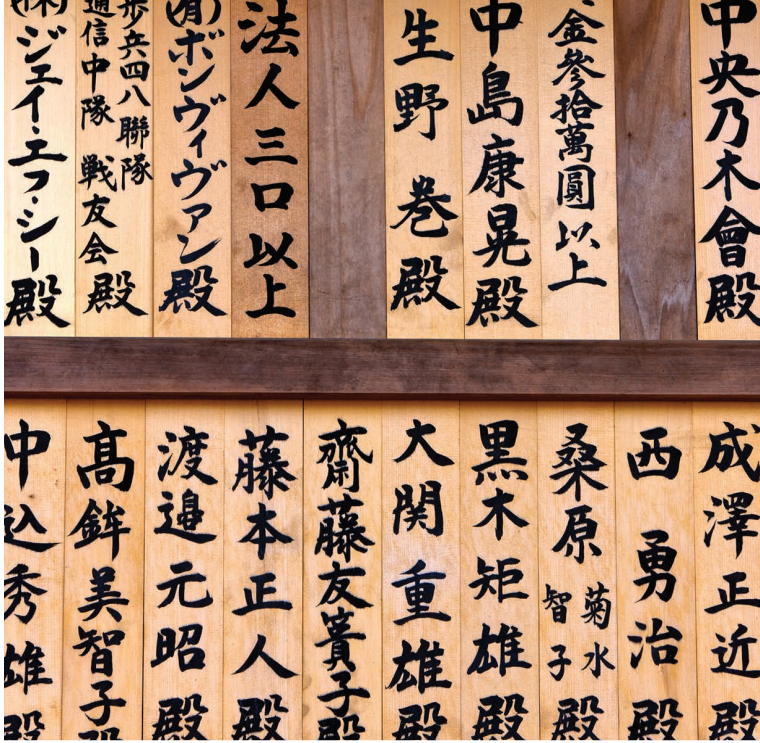 中央乃木會殿
金參拾萬圓以上
中島康晃殿
生野巻殿
法人三口以上
(有)ボンヴィヴァン殿
歩兵四八聯隊
通信中隊 戦友会殿
(株)ジェイ・エフ・シー殿
成澤正近殿
西勇治殿
桑原 菊水
智子殿
黒木矩雄殿
大関重雄殿
齋藤友賓子殿
藤本正人殿
渡邉元昭殿
髙鉾美智子殿
中込秀雄殿